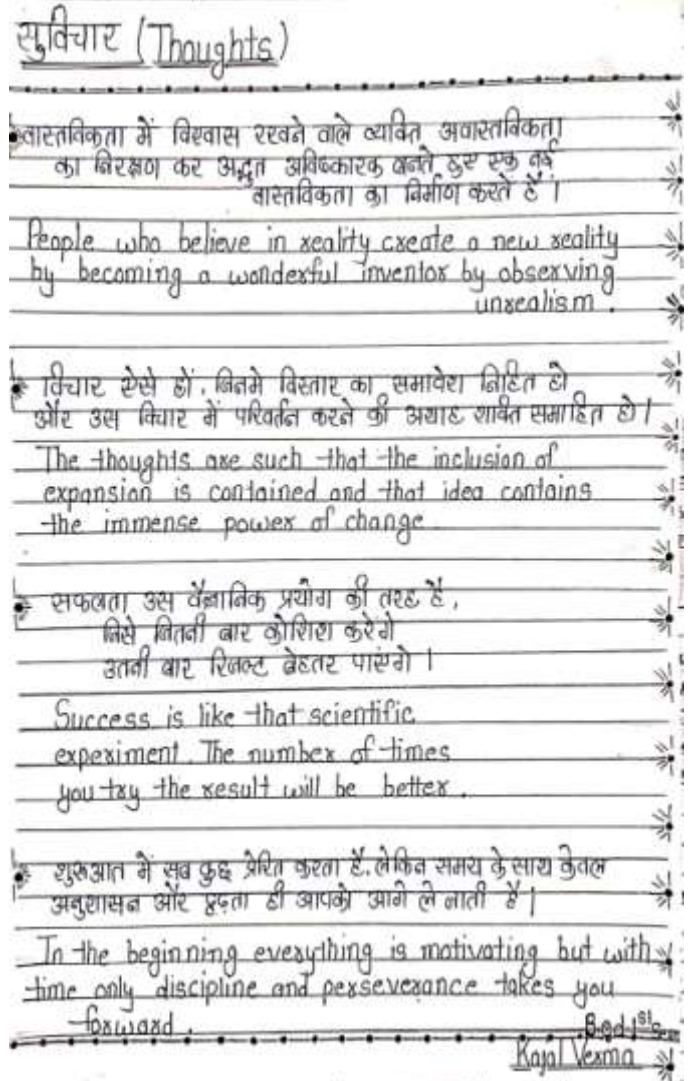 सुविचार (Thoughts)
वास्तविकता में विश्वास रखने वाले व्यक्ति अवास्तविकता
का निरक्षण कर अद्भुत अविष्कारक बनते हुए एक नई
वास्तविकता का निर्माण करते हैं ।
People who believe in reality create a new reality
by becoming a wonderful inventor by observing
unrealism .
विचार ऐसे हों , जिनमे विस्तार का समावेश निहित हो
और उस विचार में परिवर्तन करने की अथाह शक्ति समाहित हो ।
The thoughts are such that the inclusion of
expansion is contained and that idea contains
the immense power of change
सफलता उस वैज्ञानिक प्रयोग की तरह है ,
जिसे जितनी बार कोशिश करेगे
उतनी बार रिजल्ट बेहतर पाएंगे ।
Success is like that scientific
experiment . The number of times
you try the result will be better .
शुरुआत में सब कुछ प्रेरित करता है, लेकिन समय के साथ केवल
अनुशासन और दृढ़ता ही आपको आगे ले जाती है ।
In the beginning everything is motivating but with
time only discipline and perseverance takes you
forward .
B.ed 1st Sem
Kajal Verma